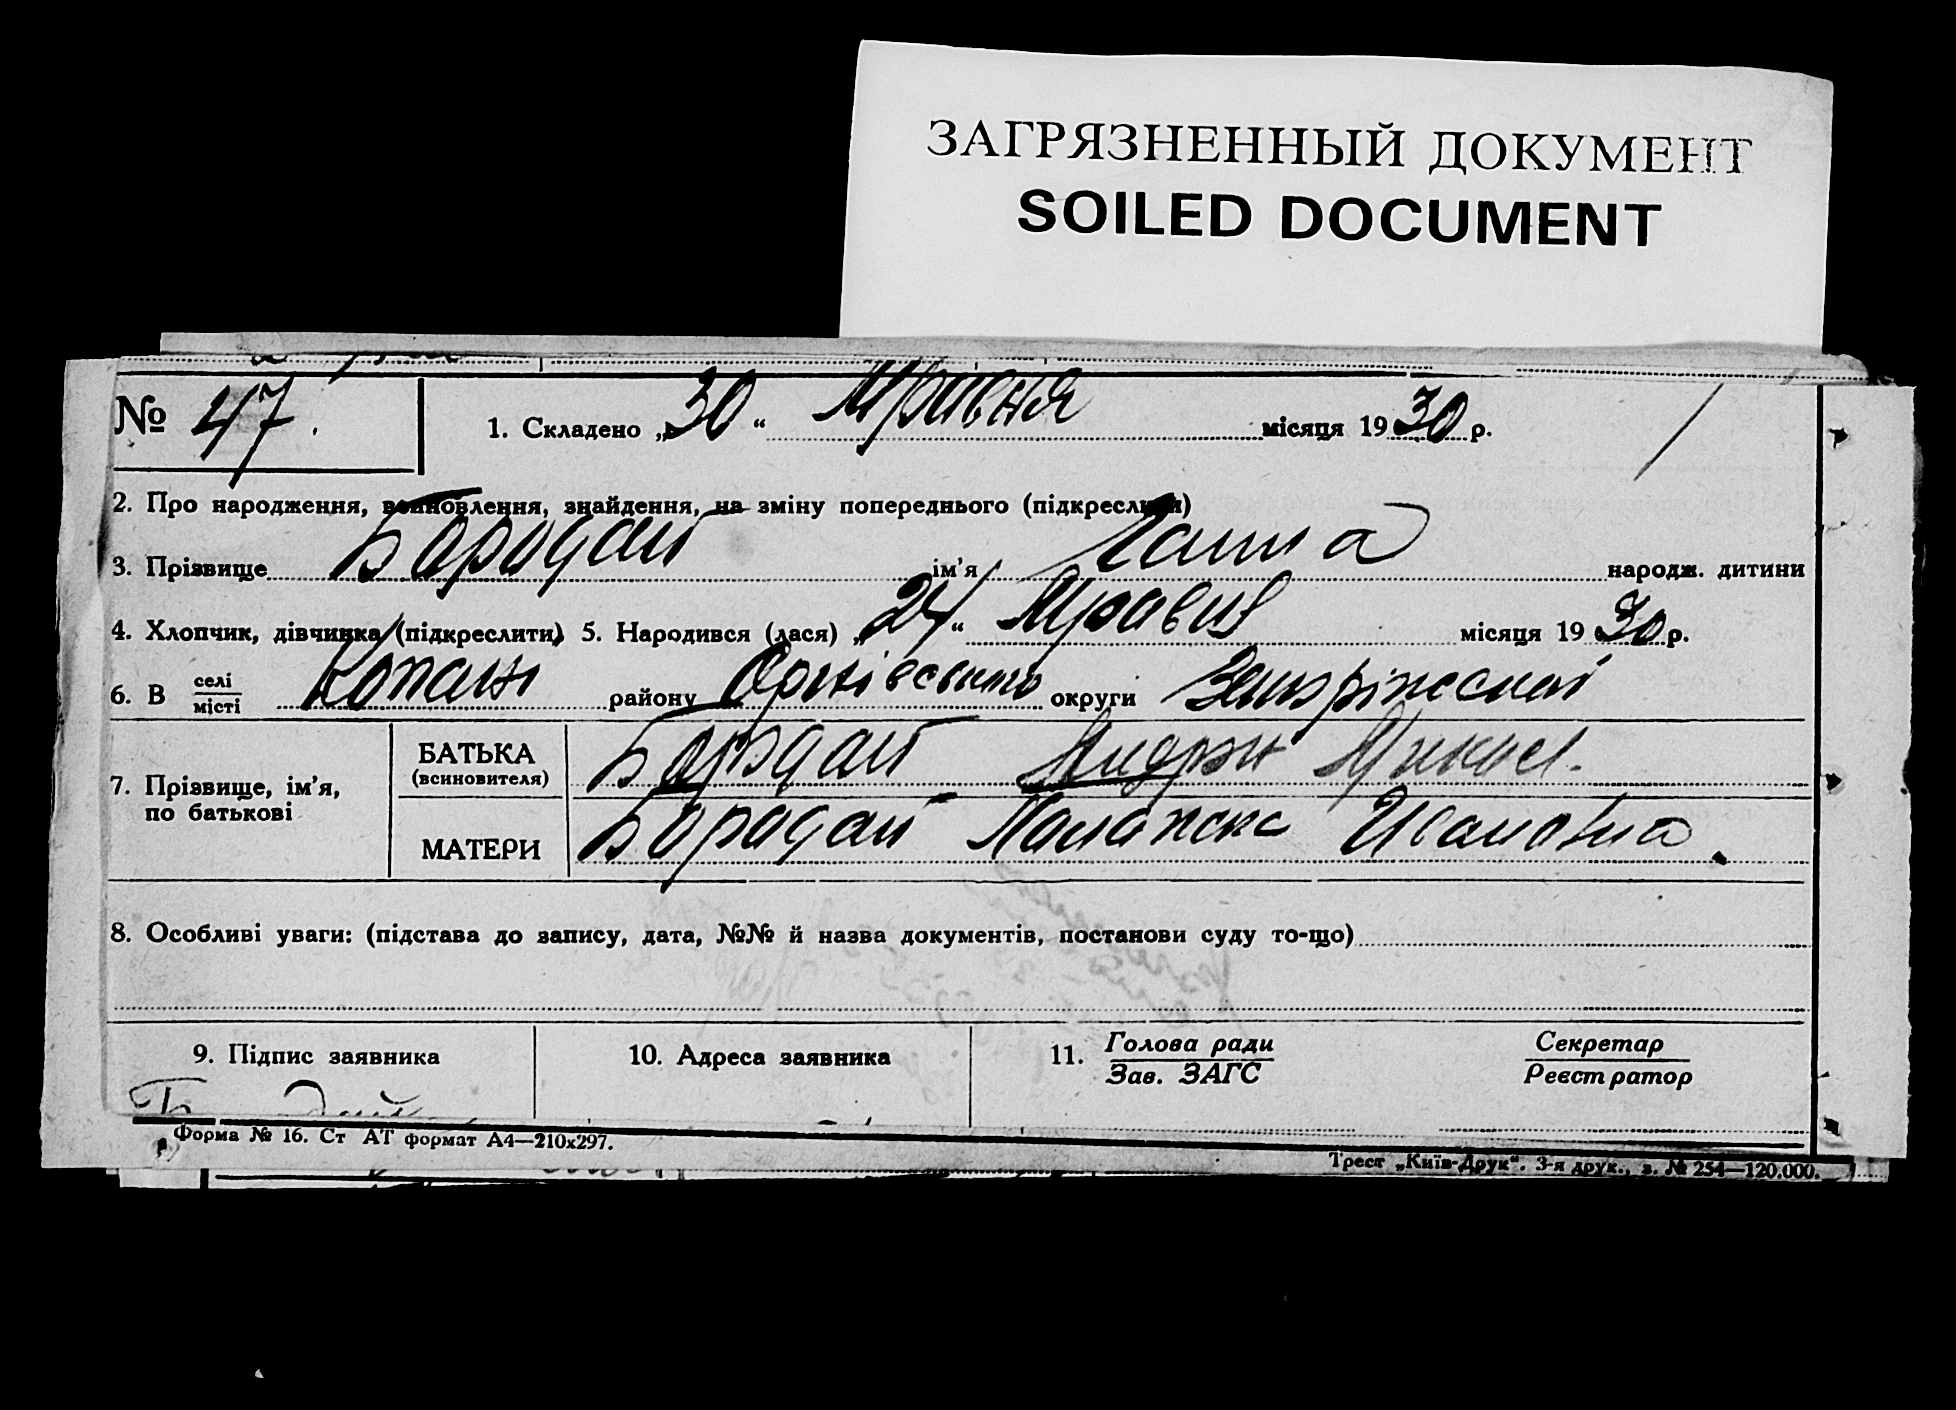 ЗАГРЯЗНЕННЫЙ ДОКУМЕНТ
SOILED DOCUMENT
№ 47.
1. Складено „30“ Травня місяця 1930 р.
2. Про народження, всиновлення, знайдення, на зміну попереднього (підкреслити)
3. Прізвище Бородай ім'я Ганна народж. дитини
4. Хлопчик, дівчинка (підкреслити) 5. Народився (лася) „24“ Травня місяця 1930 р.
6. В селі
місті Копані району Оріхівського округи Запоріжської
7. Прізвище, ім'я, по батькові
БАТЬКА (всиновителя) Бородай Андрій
МАТЕРИ Бородай Палажка Ивановна.
8. Особливі уваги: (підстава до запису, дата, №№ й назва документів, постанови суду то-що)
9. Підпис заявника
10. Адреса заявника
11. Голова ради
Зав. ЗАГС
Секретар
Реєстратор
Форма № 16. Ст АТ формат А4—210х297.
Трест „Київ-Друк“. 3-я друк., з. № 254—120.000.